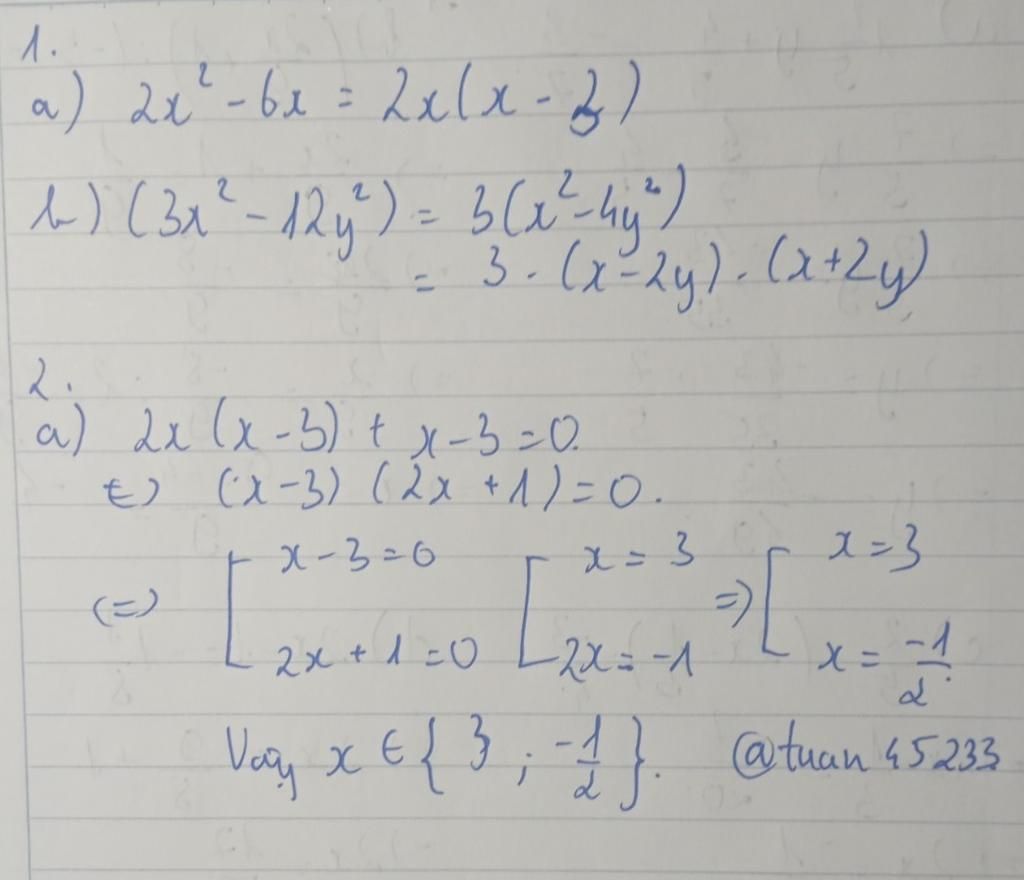 1.
a) 2x² - 6x = 2x(x - 3)
b) (3x² - 12y²) = 3(x² - 4y²)
= 3 . (x - 2y) . (x + 2y)
2.
a) 2x (x - 3) + x - 3 = 0.
<=> (x - 3) (2x + 1) = 0.
<=> [ x - 3 = 0 [ x = 3 => [ x = 3
2x + 1 = 0 2x = -1 x = -1/2.
Vậy x ∈ { 3 ; -1/2 }. @tuan45233